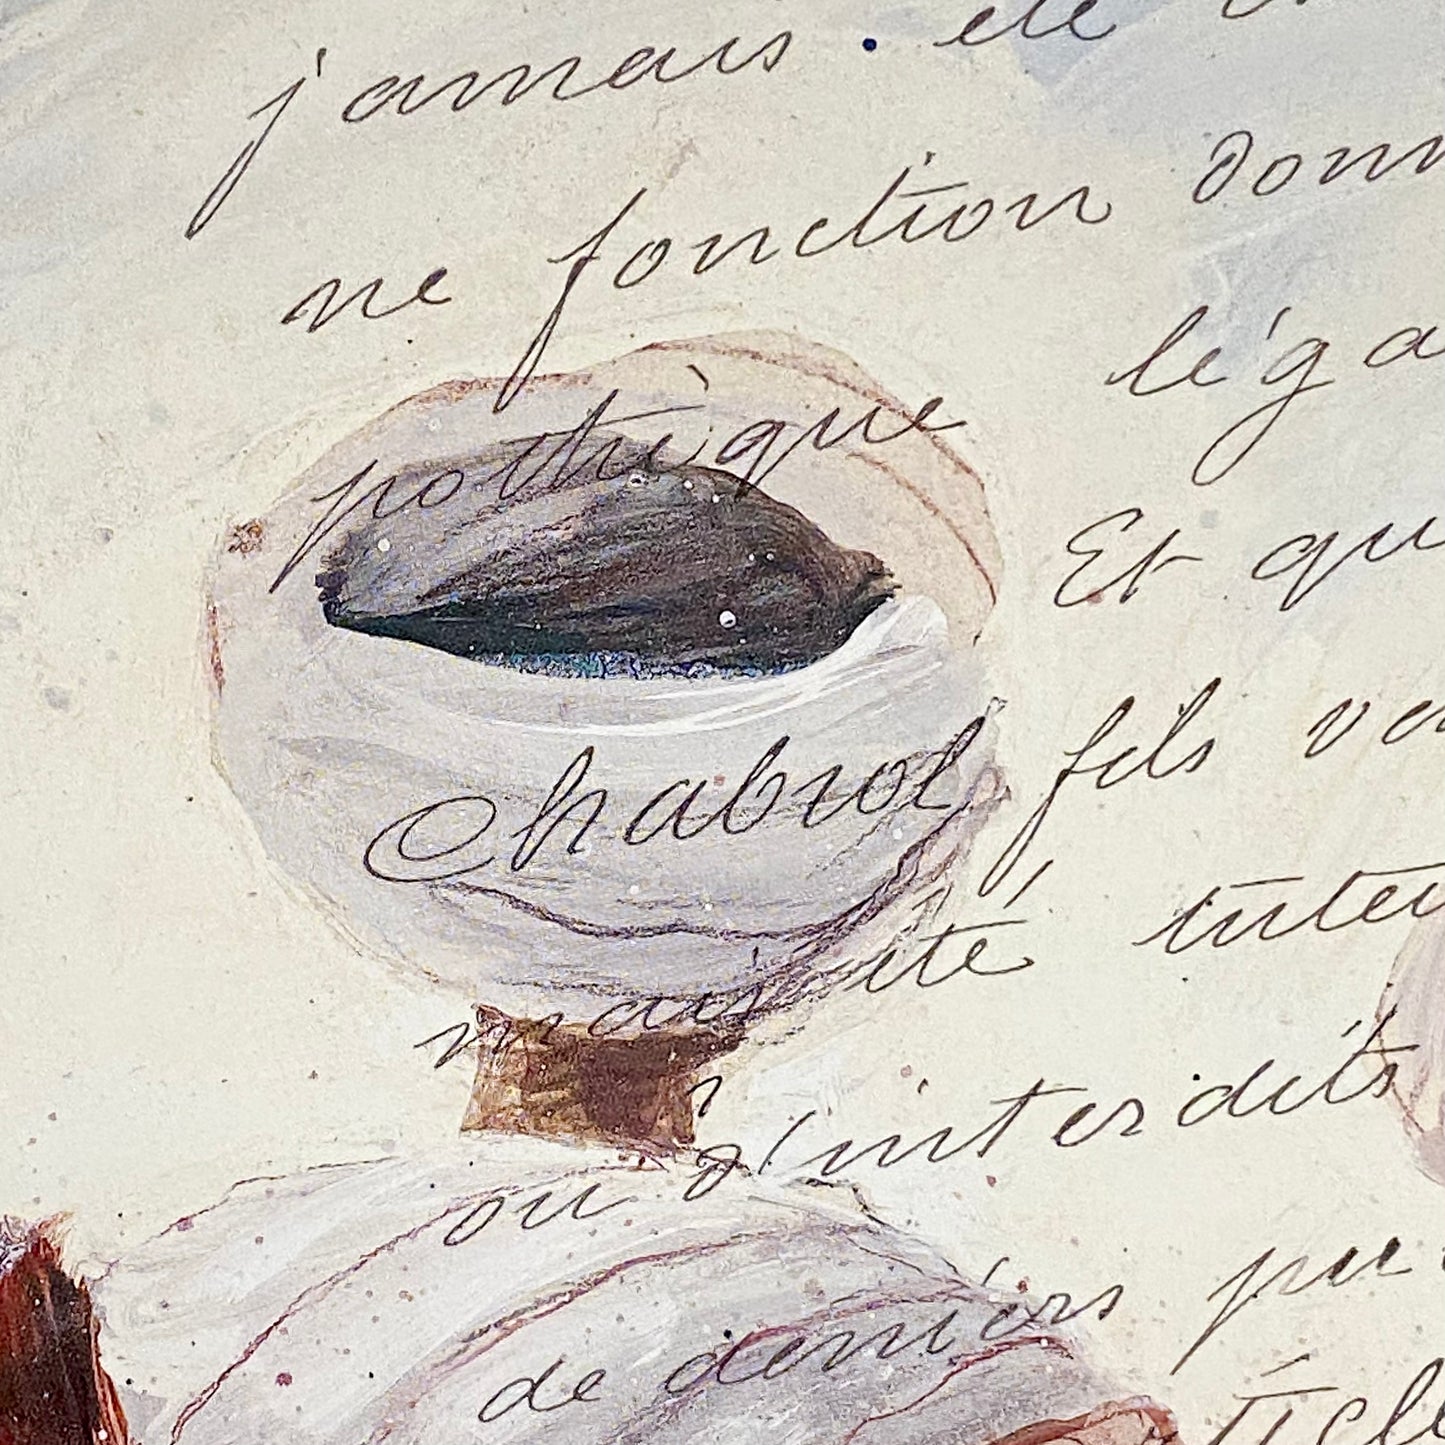 jamais été
ne fonction donn
pothèque léga
Et qu
Chabrol fils
mais été inter
ou d'interdits
de deniers pu
ticle